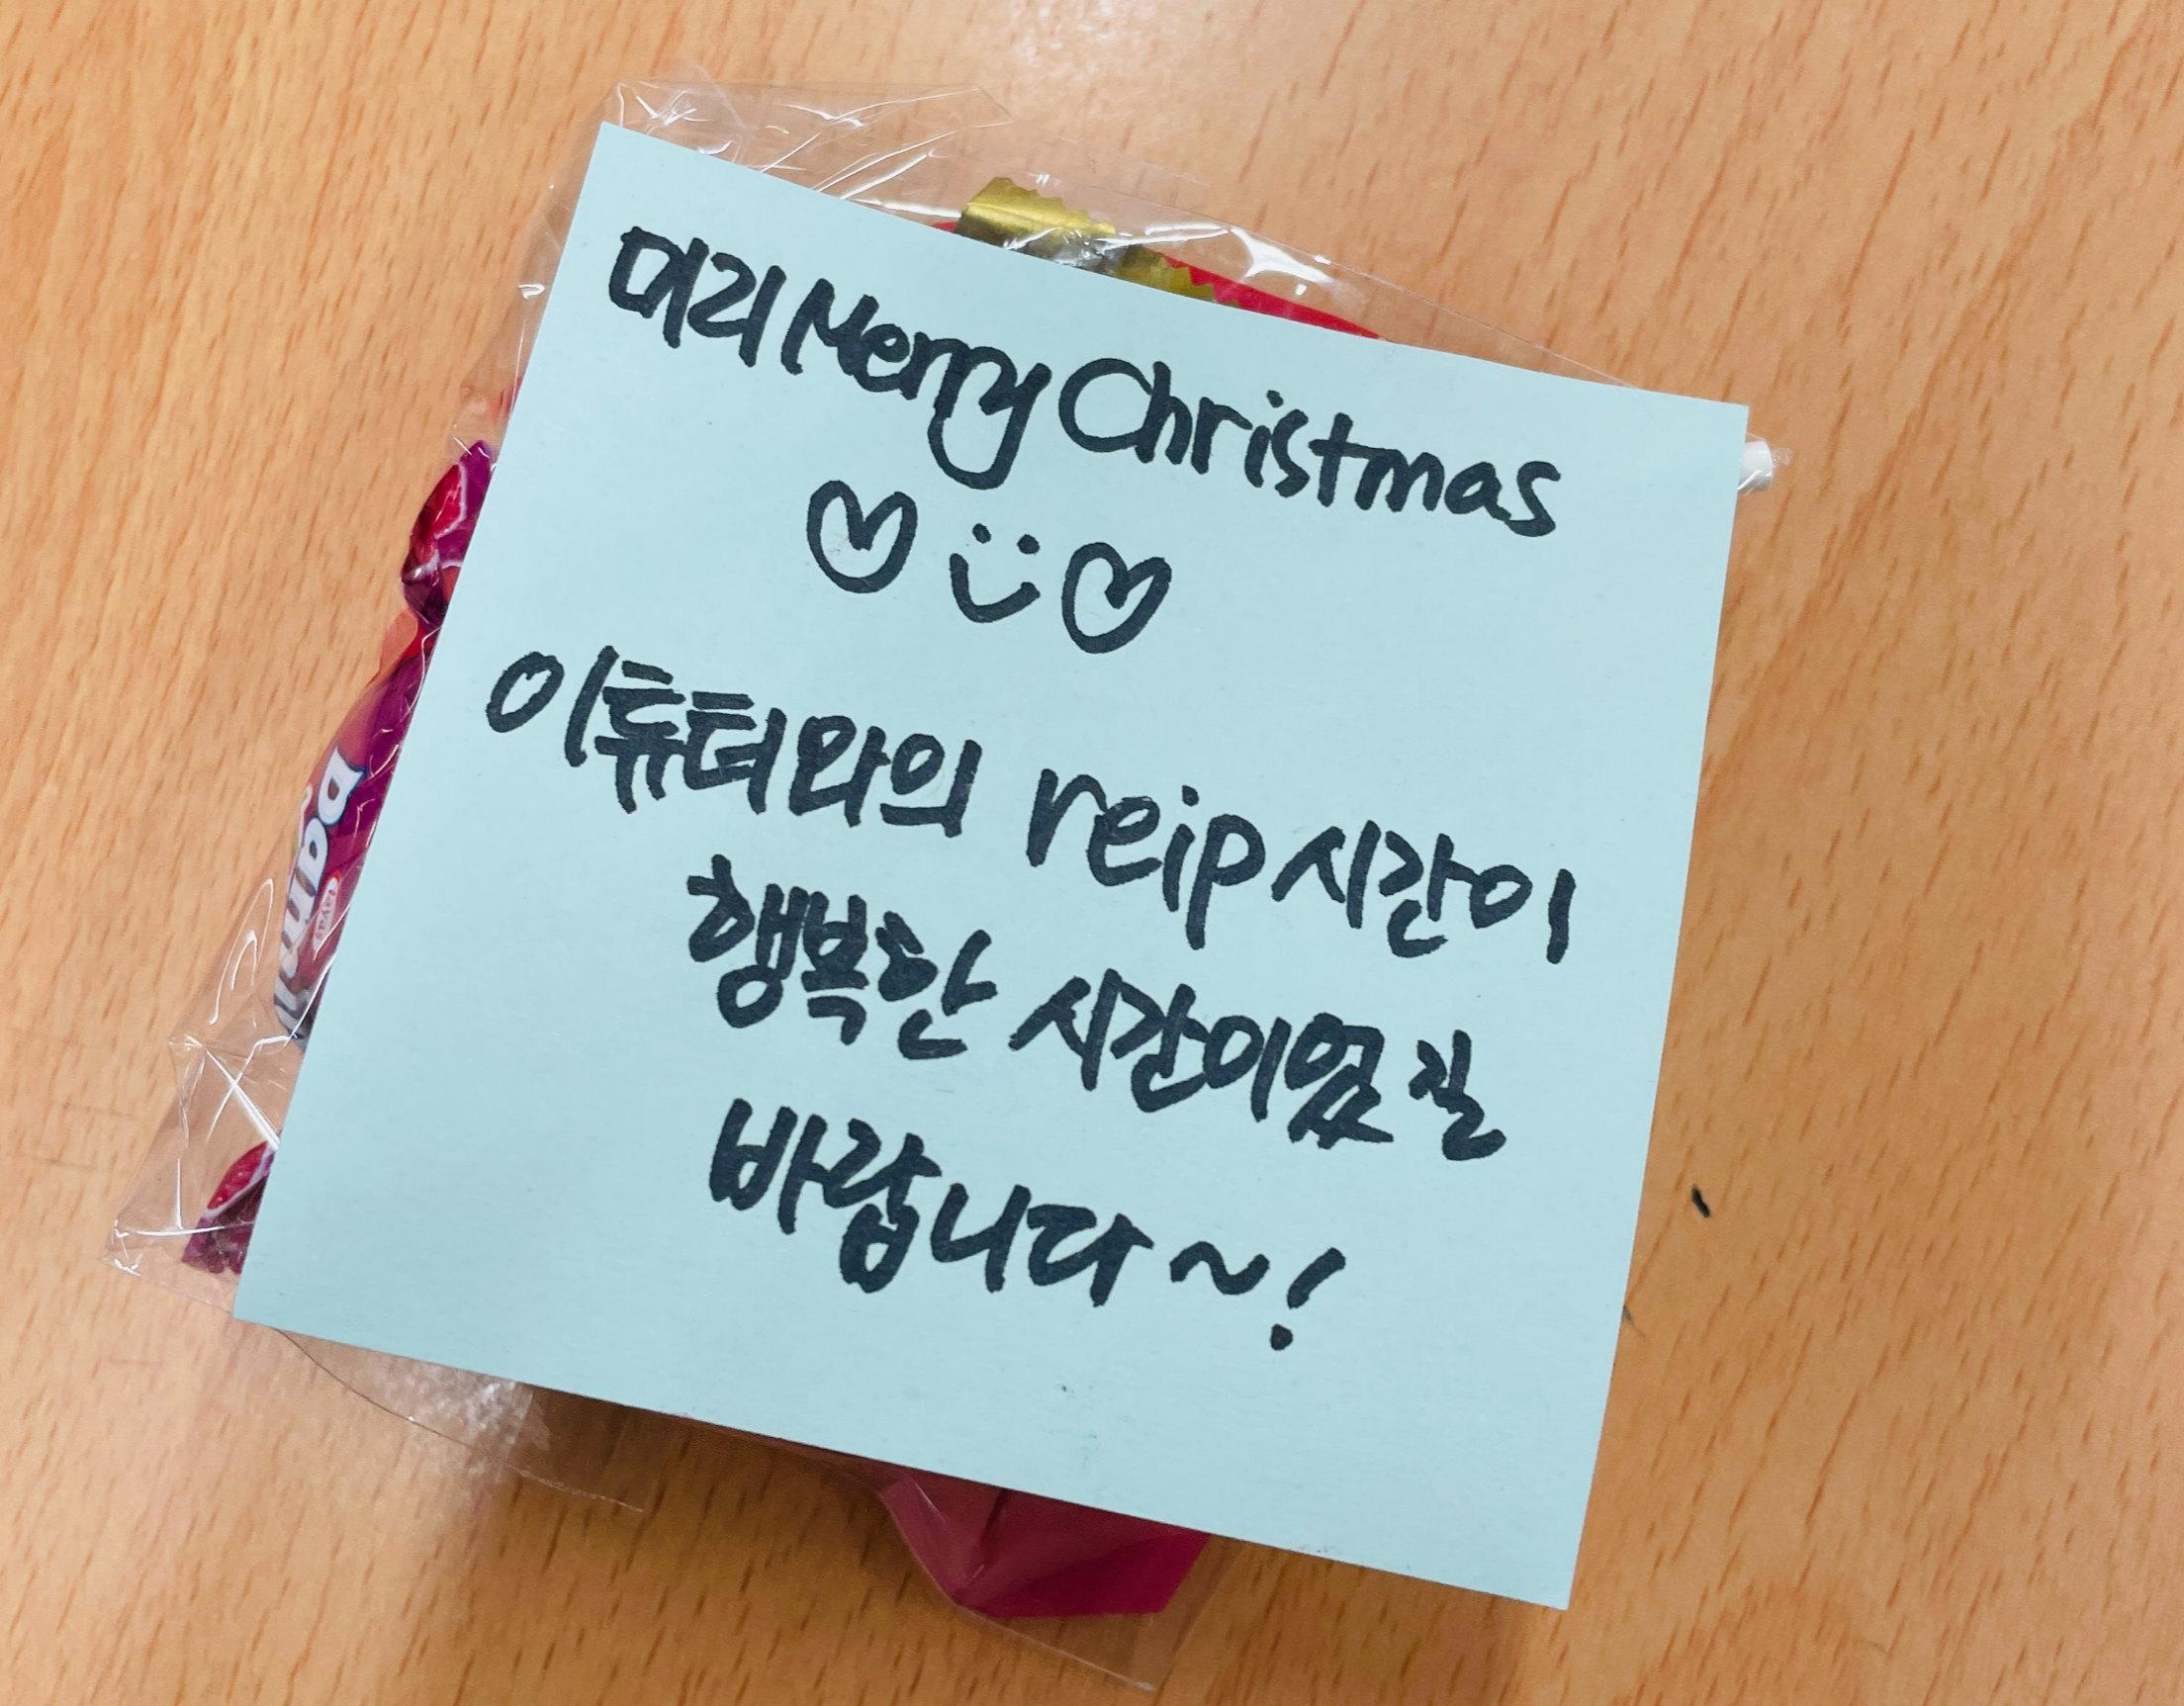 미리 Merry Christmas
♡ :) ♡
이튜터와의 reip 시간이
행복한 시간이었길
바랍니다~!